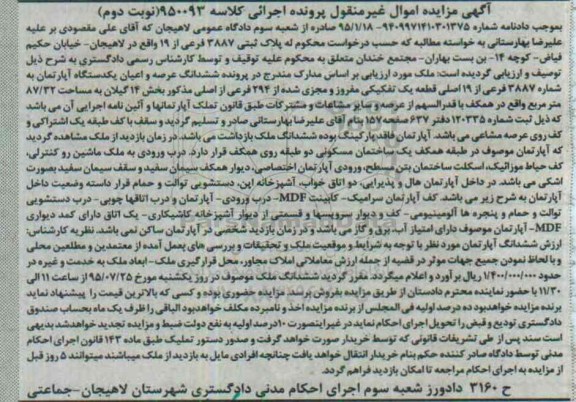 آگهی مزایده اموال غیرمنقول پرونده اجرائی کلاسه ۹۵۰۰۹۳(نوبت دوم)
بموجب دادنامه شماره ۹۴۰۹۹۷۱۴۱۰۳۰۱۳۷۵-۹۵/۱/۱۸ صادره از شعبه سوم دادگاه عمومی لاهیجان که آقای علی مقصودی بر علیه
علیرضا بهارستانی به خواسته مطالبه که حسب درخواست محکوم له پلاک ثبتی ۳۸۸۷ فرعی از ۱۹ واقع در لاهیجان- خیابان حکیم
فیاض- کوچه ۱۴- بن بست بهاران- مجتمع خندان متعلق به محکوم علیه توقیف و توسط کارشناس رسمی دادگستری به شرح ذیل
توصیف و ارزیابی گردیده است: ملک مورد ارزیابی بر اساس مدارک مندرج در پرونده ششدانگ عرصه و اعیان یکدستگاه آپارتمان به
شماره ۳۸۸۷ فرعی از ۱۹ اصلی قطعه یک تفکیکی مفروز و مجزی شده از ۲۹۴ فرعی از اصلی مذکور بخش ۱۴ گیلان به مساحت ۸۷/۳۲
متر مربع واقع در همکف با قدرالسهم از عرصه و سایر مشاعات و مشترکات طبق قانون تملک آپارتمانها و آئین نامه اجرایی آن می باشد
که ذیل ثبت شماره ۱۲۰۳۳۵ دفتر ۶۳۷ صفحه ۱۵۷ بنام آقای علیرضا بهارستانی صادر و تسلیم گردید و سقف با کف طبقه یک اشتراکی و
کف روی عرصه مشاعی می باشد. آپارتمان فاقد پارکینگ بوده ششدانگ ملک بازداشت می باشد. در زمان بازدید از ملک مشاهده گردید
که آپارتمان موصوف در طبقه همکف یک ساختمان مسکونی دو طبقه روی همکف قرار دارد. درب ورودی به ملک ماشین رو کنترلی،
کف حیاط موزائیک، اسکلت ساختمان بتن مسطح، ورودی آپارتمان اختصاصی، دیوار همکف سیمان سفید و سقف سیمان سفید بصورت
اشکی می باشد. در داخل آپارتمان هال و پذیرایی، دو اتاق خواب، آشپزخانه اپن، دستشویی توالت و حمام قرار داسته وضعیت داخل
آپارتمان به شرح زیر می باشد. کف آپارتمان سرامیک- کابینت MDF- درب ورودی- آپارتمان و درب اتاقها چوبی- درب دستشویی
توالت و حمام و پنجره ها آلومینیومی- کف و دیوار سرویسها و قسمتی از دیوار آشپزخانه کاشیکاری- یک اتاق دارای کمد دیواری
MDF- آپارتمان موصوف دارای امتیاز آب، برق و گاز می باشد و در زمان بازدید شخصی در آپارتمان ساکن نمی باشد. نظریه کارشناس:
ارزش ششدانگ آپارتمان مورد نظر با توجه به شرایط و موقعیت ملک و تحقیقات و بررسی های بعمل آمده از معتمدین و مطلعین محلی
و با لحاظ نمودن جمیع جهات موثر در قضیه از جمله ارزش معاملاتی املاک مجاور، محل قرارگیری ملک- ابعاد ملک به خدمت و غیره در
حدود ۱/۴۰۰/۰۰۰/۰۰۰ ریال بر آورد و اعلام میگردد. مقرر گردید ششدانگ ملک موصوف در روز یکشنبه مورخ ۹۵/۰۷/۲۵ از ساعت ۱۱ الی
۱۱/۳۰ با حضور نماینده محترم دادستان از طریق مزایده بفروش برسد. مزایده حضوری بوده و کسی که بالاترین قیمت را پیشنهاد نماید
برنده مزایده خواهد بود ده درصد اولیه فی المجلس از برنده مزایده اخذ و نامبرده مکلف خواهد بود الباقی را ظرف یک ماه بحساب صندوق
دادگستری تودیع و قبض را تحویل اجرای احکام نماید در غیر اینصورت ۱۰ درصد اولیه به نفع دولت ضبط و مزایده تجدید خواهد شد بدیهی
است سند پس از طی تشریفات قانونی که توسط خریدار صورت خواهد گرفت و صدور دستور تملیک طبق ماده ۱۴۳ قانون اجرای احکام
مدنی توسط دادگاه صادر کننده حکم بنام خریدار انتقال خواهد یافت چنانچه افرادی مایل به بازدید از ملک میباشند میتوانند ۵ روز قبل
از مزایده به اجرای احکام مراجعه تا امکان بازدید فراهم گردد.
ح ۳۱۶۰ دادورز شعبه سوم اجرای احکام مدنی دادگستری شهرستان لاهیجان-جماعتی